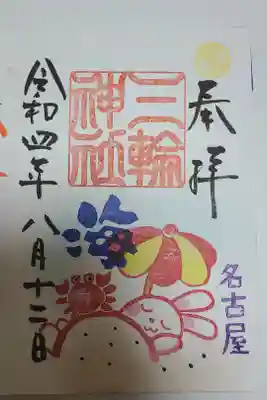 奉拝
三輪
神社
名古屋
令和四年八月十二日